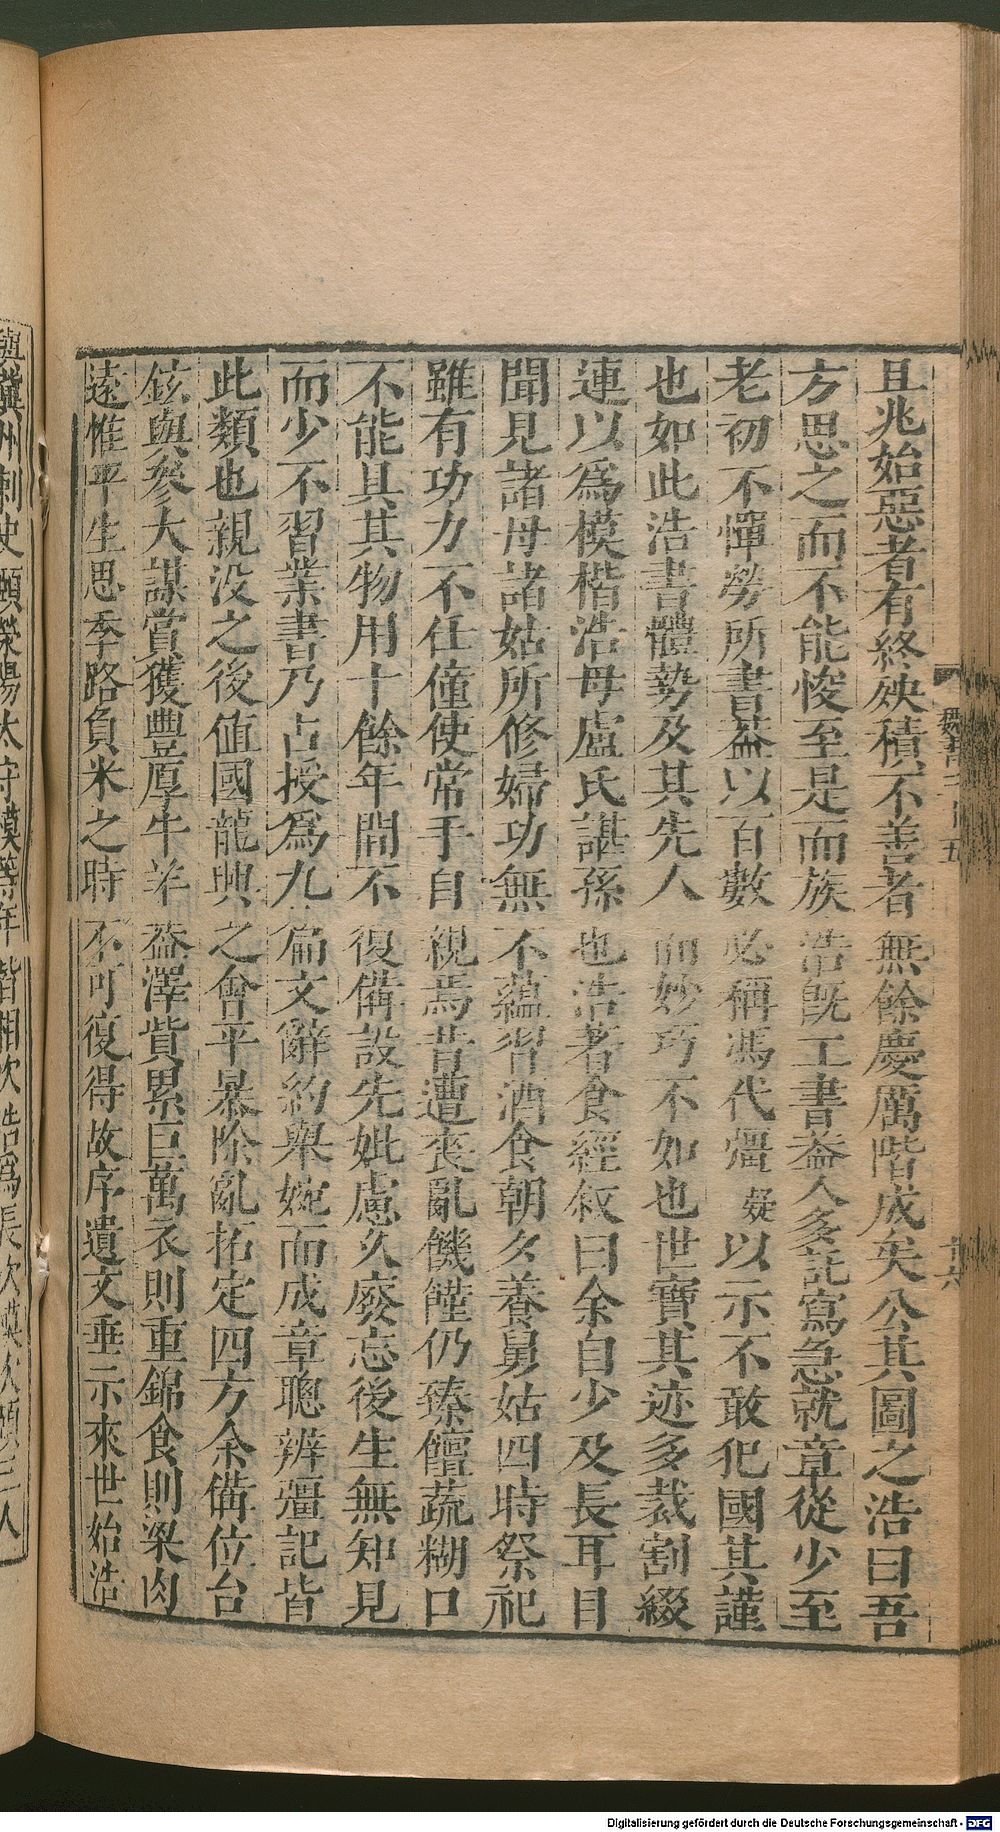 且兆始惡者有終殃積不善者無餘慶厲階成矣公其圖之浩曰吾
方思之而不能悛至是而族浩旣工書蓋人多託寫急就章從少至
老初不憚勞所書蓋以百數必稱馮代彊疑以示不敢犯國其謹
也如此浩書體勢及其先人而妙巧不如也世寶其迹多裁割綴
連以爲模楷浩母盧氏諶孫也浩著食經叙曰余自少及長耳目
聞見諸母諸姑所修婦功無不蘊習酒食朝夕養舅姑四時祭祀
雖有功力不任僮使常手自親焉昔遭喪亂饑饉仍臻饘蔬糊口
不能具其物用十餘年間不復備設先妣慮久廢忘後生無知見
而少不習業書乃占授爲九篇文辭約舉婉而成章聰辨彊記皆
此類也親没之後值國龍興之會平暴除亂拓定四方余備位台
鉉與參大謀賞獲豐厚牛羊蓋澤貲累巨萬衣則重錦食則粱肉
遠惟平生思季路負米之時不可復得故序遺文垂示來世始浩
冀州刺史頤滎陽太守模等年皆相次浩爲長次模次頤三人
Digitalisierung gefördert durch die Deutsche Forschungsgemeinschaft - DFG